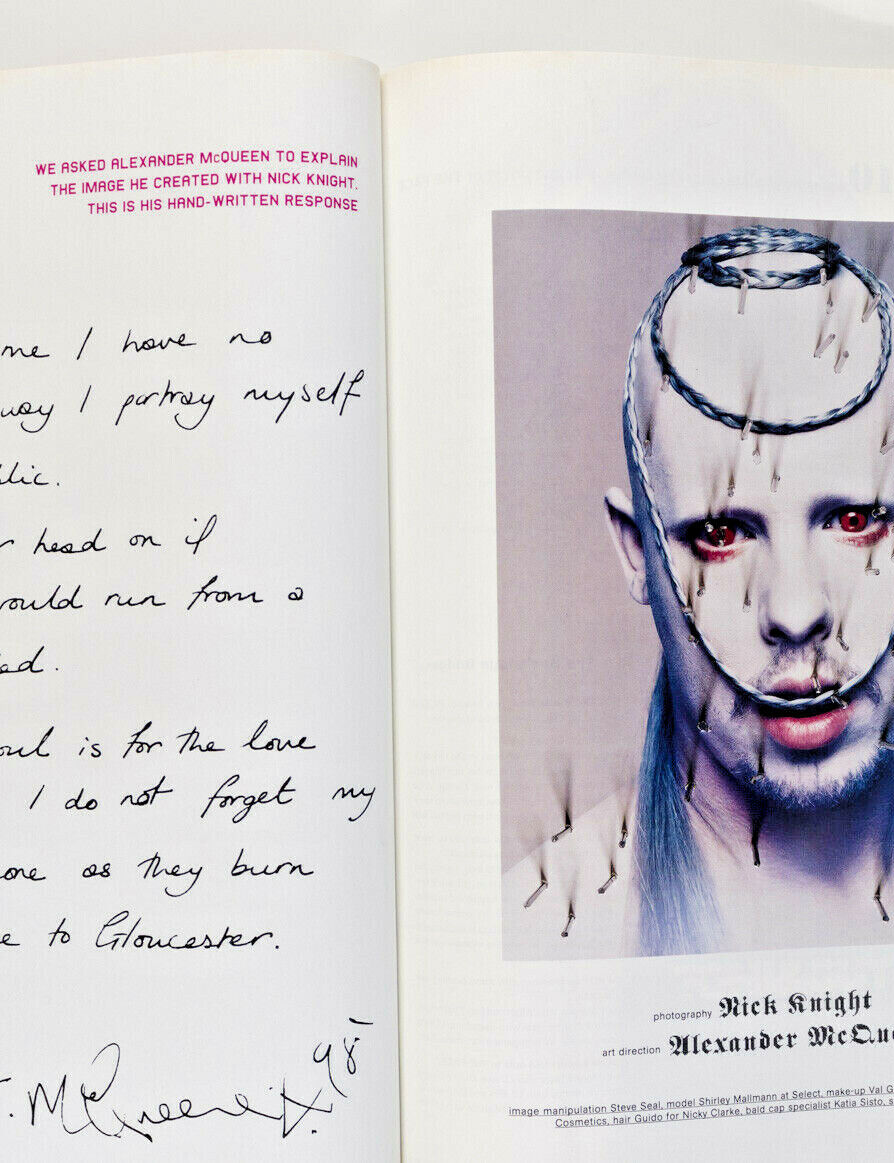 WE ASKED ALEXANDER McQUEEN TO EXPLAIN
THE IMAGE HE CREATED WITH NICK KNIGHT.
THIS IS HIS HAND-WRITTEN RESPONSE
me I have no
way I portray myself
lic.
head on if
would run from a
ad.
oul is for the love
I do not forget my
one as they burn
e to Gloucester.
McQueen 98
photography Nick Knight
art direction Alexander McQue
image manipulation Steve Seal, model Shirley Mallmann at Select, make-up Val G
Cosmetics, hair Guido for Nicky Clarke, bald cap specialist Katia Sisto, s